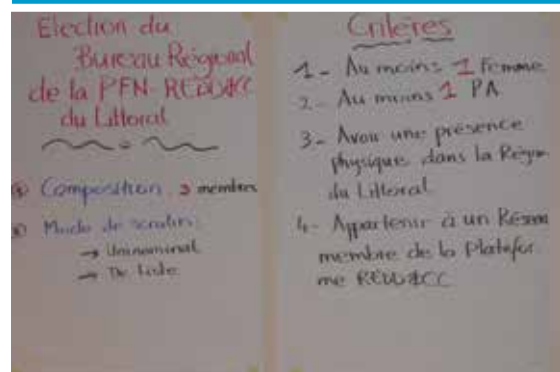 Election du
Bureau Régional
de la PFN-REDD&CC
du Littoral
Composition 3 membres
Mode de scrutin:
→ Uninominal
→ De Liste
Critères
1- Au moins 1 femme
2- Au moins 1 PA
3- Avoir une présence
physique dans la Région
du Littoral
4- Appartenir à un Réseau
membre de la Platefor
me REDD&CC